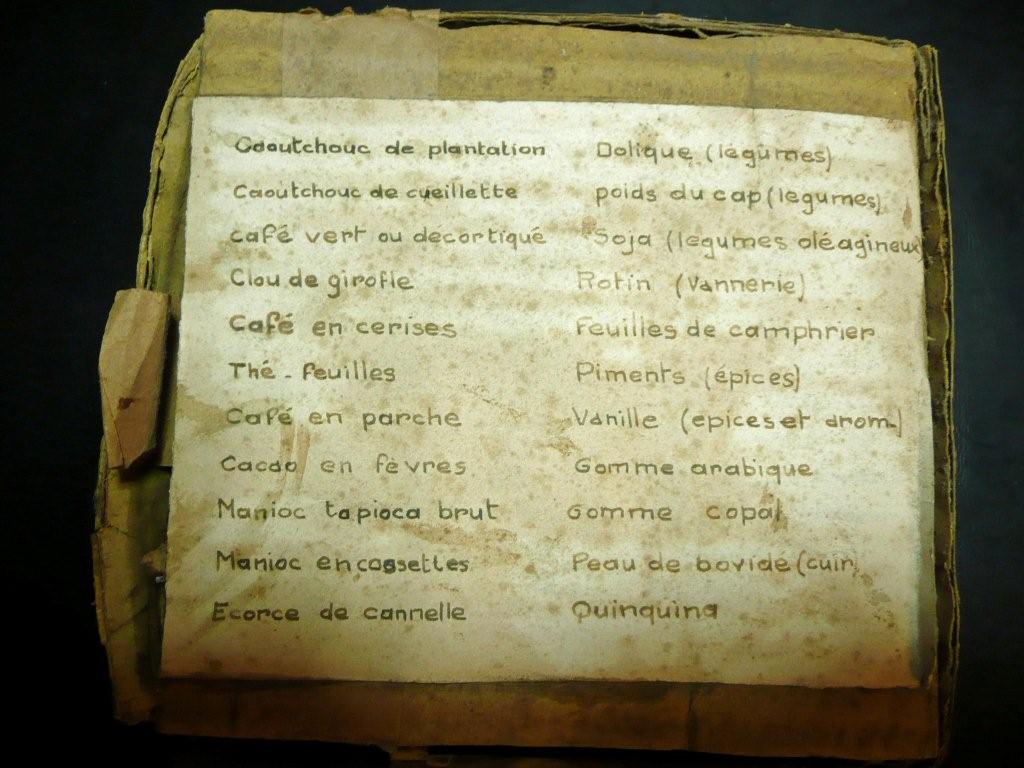 Caoutchouc de plantation
Caoutchouc de cueillette
Café vert ou decortiqué
Clou de girofle
Café en cerises
Thé - feuilles
Café en parche
Cacao en fèvres
Manioc tapioca brut
Manioc en cossettes
Ecorce de cannelle
Dolique (légumes)
poids du cap (legumes)
Soja (legumes oléagineux)
Rotin (Vannerie)
Feuilles de camphrier
Piments (épices)
Vanille (epices et arom.)
Gomme arabique
Gomme copal
Peau de bovidé (cuir)
Quinquina